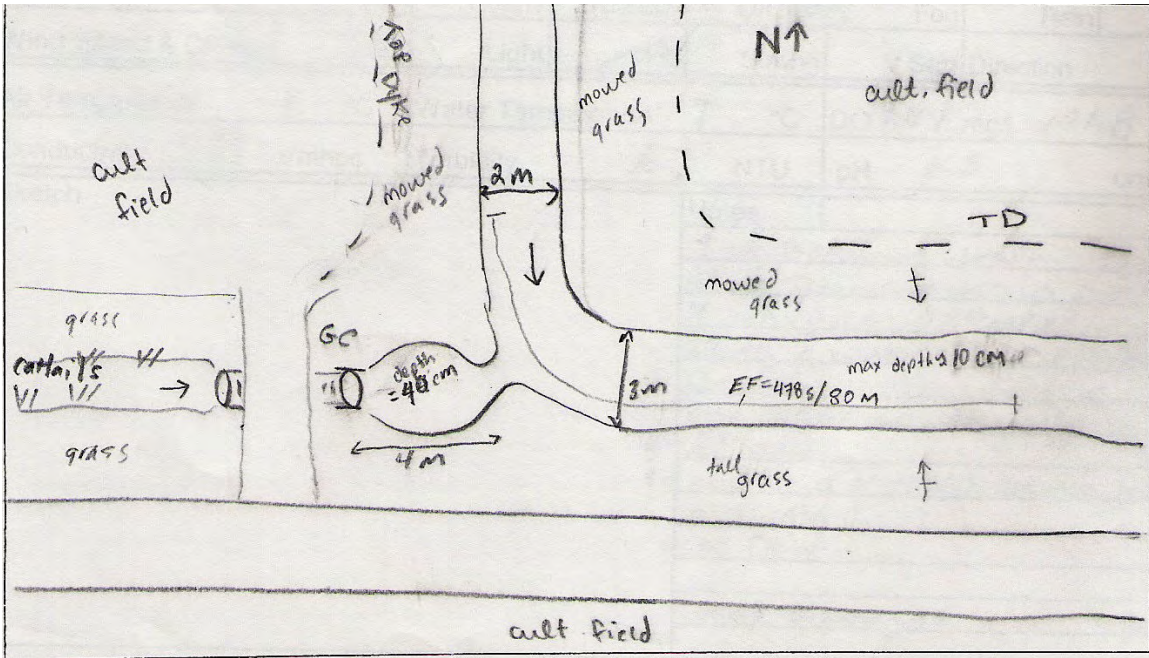 N↑
Top
Dyke
mowed
grass
cult. field
cult
field
mowed
grass
2m
TD
mowed
grass
grass
GC
cattails
depth
3m
max depth ≈ 10 cm
EF=478s/80m
grass
4m
tall
grass
cult field